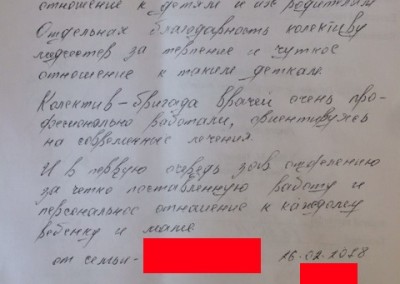 отношение к детям и их родителям
Отдельная благодарность колективу
медсестер за терпение и чуткое
отношение к таким деткам.
Колектив-бригада врачей очень про-
фесионально работали, ориентируясь
на современное лечения.
И в первую очередь зав. отделению
за четко поставленную работу и
персональное отношение к каждому
ребенку и маме
от семьи - 26.02.2018